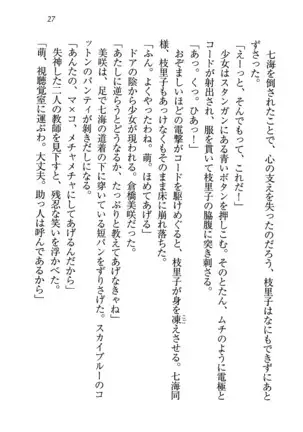 27
七海を倒されたことで、心の支えを失ったのだろう、枝里子はなにもできずにあと
ずさった。
「えーっと、そんでもって、これだー!」
少女はスタンガンにある青いボタンを押しこむ。そのとたん、ムチのように電極と
コードが射出され、服を貫いて枝里子の脇腹に突き刺さる。
「あっ、くっ。ひあっー!」
おびただしいほどの電撃がコードを駆けめぐると、枝里子が身を凍えさせる。七海同
様、枝里子もそのまま床に崩れ落ちた。
「ふん。よくやったわね。萌。ほめてあげる」
ドアの陰から少女が現われる。倉橋美咲だった。
「あたしに逆らうとどうなるか、たっぷりと教えてあげなきゃね」
美咲は、足で七海の道着の下に穿いている短パンをずりさげた。スカイブルーのコ
ットンのパンティが剝きだしになる。
「あんたの、マ×コ、メチャメチャにしてあげるんだから」
失神した二人の教師を見下すと、残忍な笑いを浮かべた。
「萌、視聴覚室に運ぶわ。大丈夫。助っ人は呼んであるから」